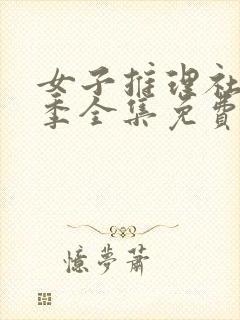 女子推理社
季全集免費
憶夢蕭